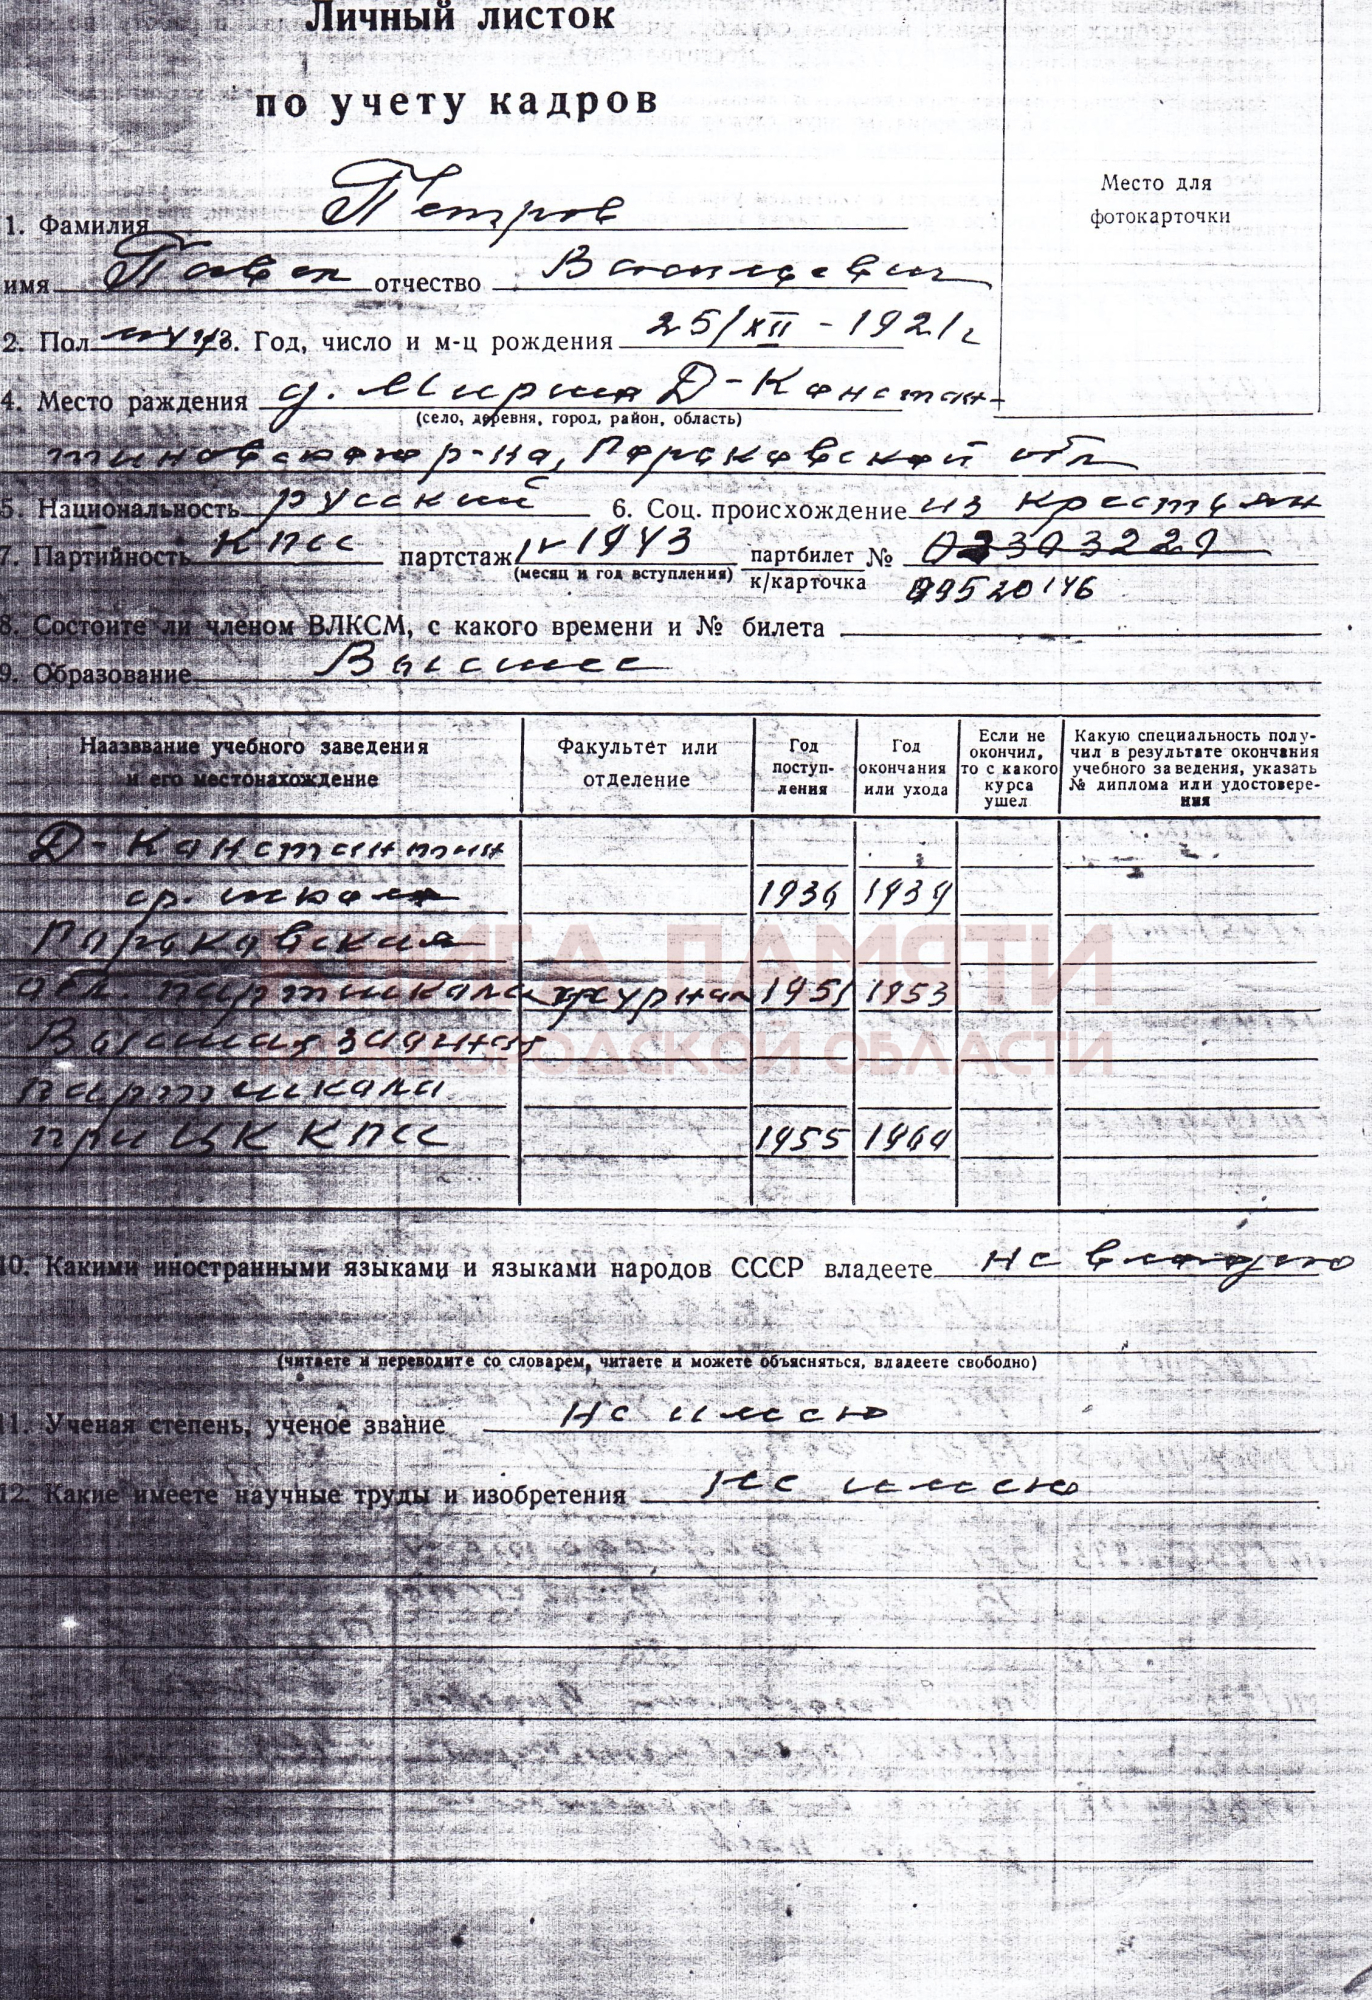 Личный листок
по учету кадров
Место для
фотокарточки
1. Фамилия Петров
имя Павел отчество Васильевич
2. Пол муж 3. Год, число и м-ц рождения 25/XII - 1921 г
4. Место раждения д. Д-Констан-
(село, деревня, город, район, область)
тиновского р-на, Горьковской обл
5. Национальность русский 6. Соц. происхождение из крестьян
7. Партийность КПСС партстаж IV 1943 партбилет №
(месяц и год вступления) к/карточка 09520146
8. Состоите ли членом ВЛКСМ, с какого времени и № билета
9. Образование Высшее
Наазввание учебного заведения
и его местонахождение
Факультет или
отделение
Год
поступ-
ления
Год
окончания
или ухода
Если не
окончил,
то с какого
курса
ушел
Какую специальность полу-
чил в результате окончания
учебного заведения, указать
№ диплома или удостовере-
ния
Д-Константин
ср. школа 1936 1939
Горьковская
обл. партшкола журнал 1951 1953
Высшая заочная
партшкола
при ЦК КПСС 1955
КНИГА ПАМЯТИ
НИЖЕГОРОДСКОЙ ОБЛАСТИ
10. Какими иностранными языками и языками народов СССР владеете не владею
(читаете и переводите со словарем, читаете и можете объясняться, владеете свободно)
11. Ученая степень, ученое звание не имею
12. Какие имеете научные труды и изобретения не имею